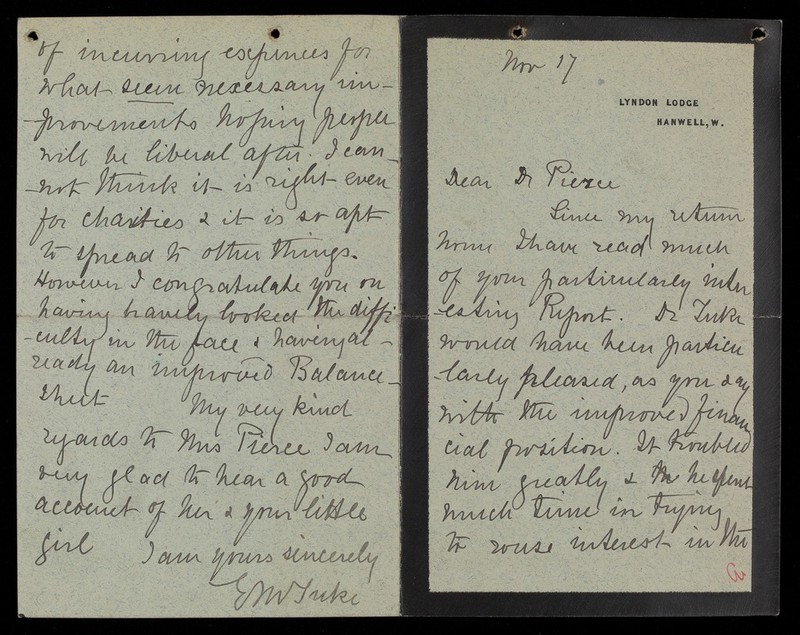 Nov 17
LYNDON LODGE
HANWELL, W.
Dear Dr Pierce
Since my return
home I have read much
of your particularly inter
-esting Report. Dr Tuke
would have been particu
-larly pleased, as you say
with the improved finan
cial position. It troubled
him greatly & he spent
much time in trying
to rouse interest in the
of incurring expences for
what seem necessary im-
-provements hoping people
will be liberal after. I can-
-not think it is right even
for charities & it is so apt
to spread to other things.
However I congratulate you on
having bravely looked the diffi
-culty in the face & having al-
ready an improved Balance-
Sheet My very kind
regards to Mrs Pierce I am
very glad to hear a good
account of her & your little
girl I am yours sincerely
E M Tuke